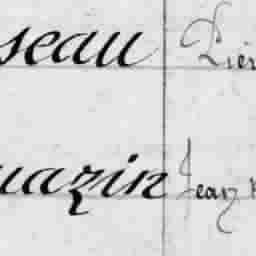 seau Pier
uazin Jean